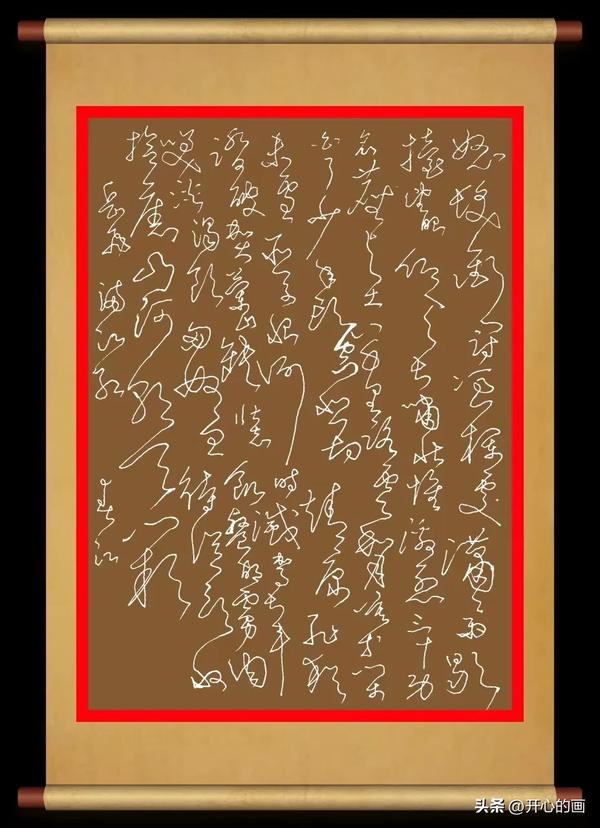 怒发冲冠凭栏处潇潇雨歇
抬望眼仰天长啸壮怀激烈三十功
名尘与土八千里路云和月莫等闲
白了少年头空悲切靖康耻犹
未雪臣子恨何时灭驾长车
踏破贺兰山缺壮志饥餐胡虏肉
笑谈渴饮匈奴血待从头收
拾旧山河朝天阙
岳飞 满江红
头条 @开心的画